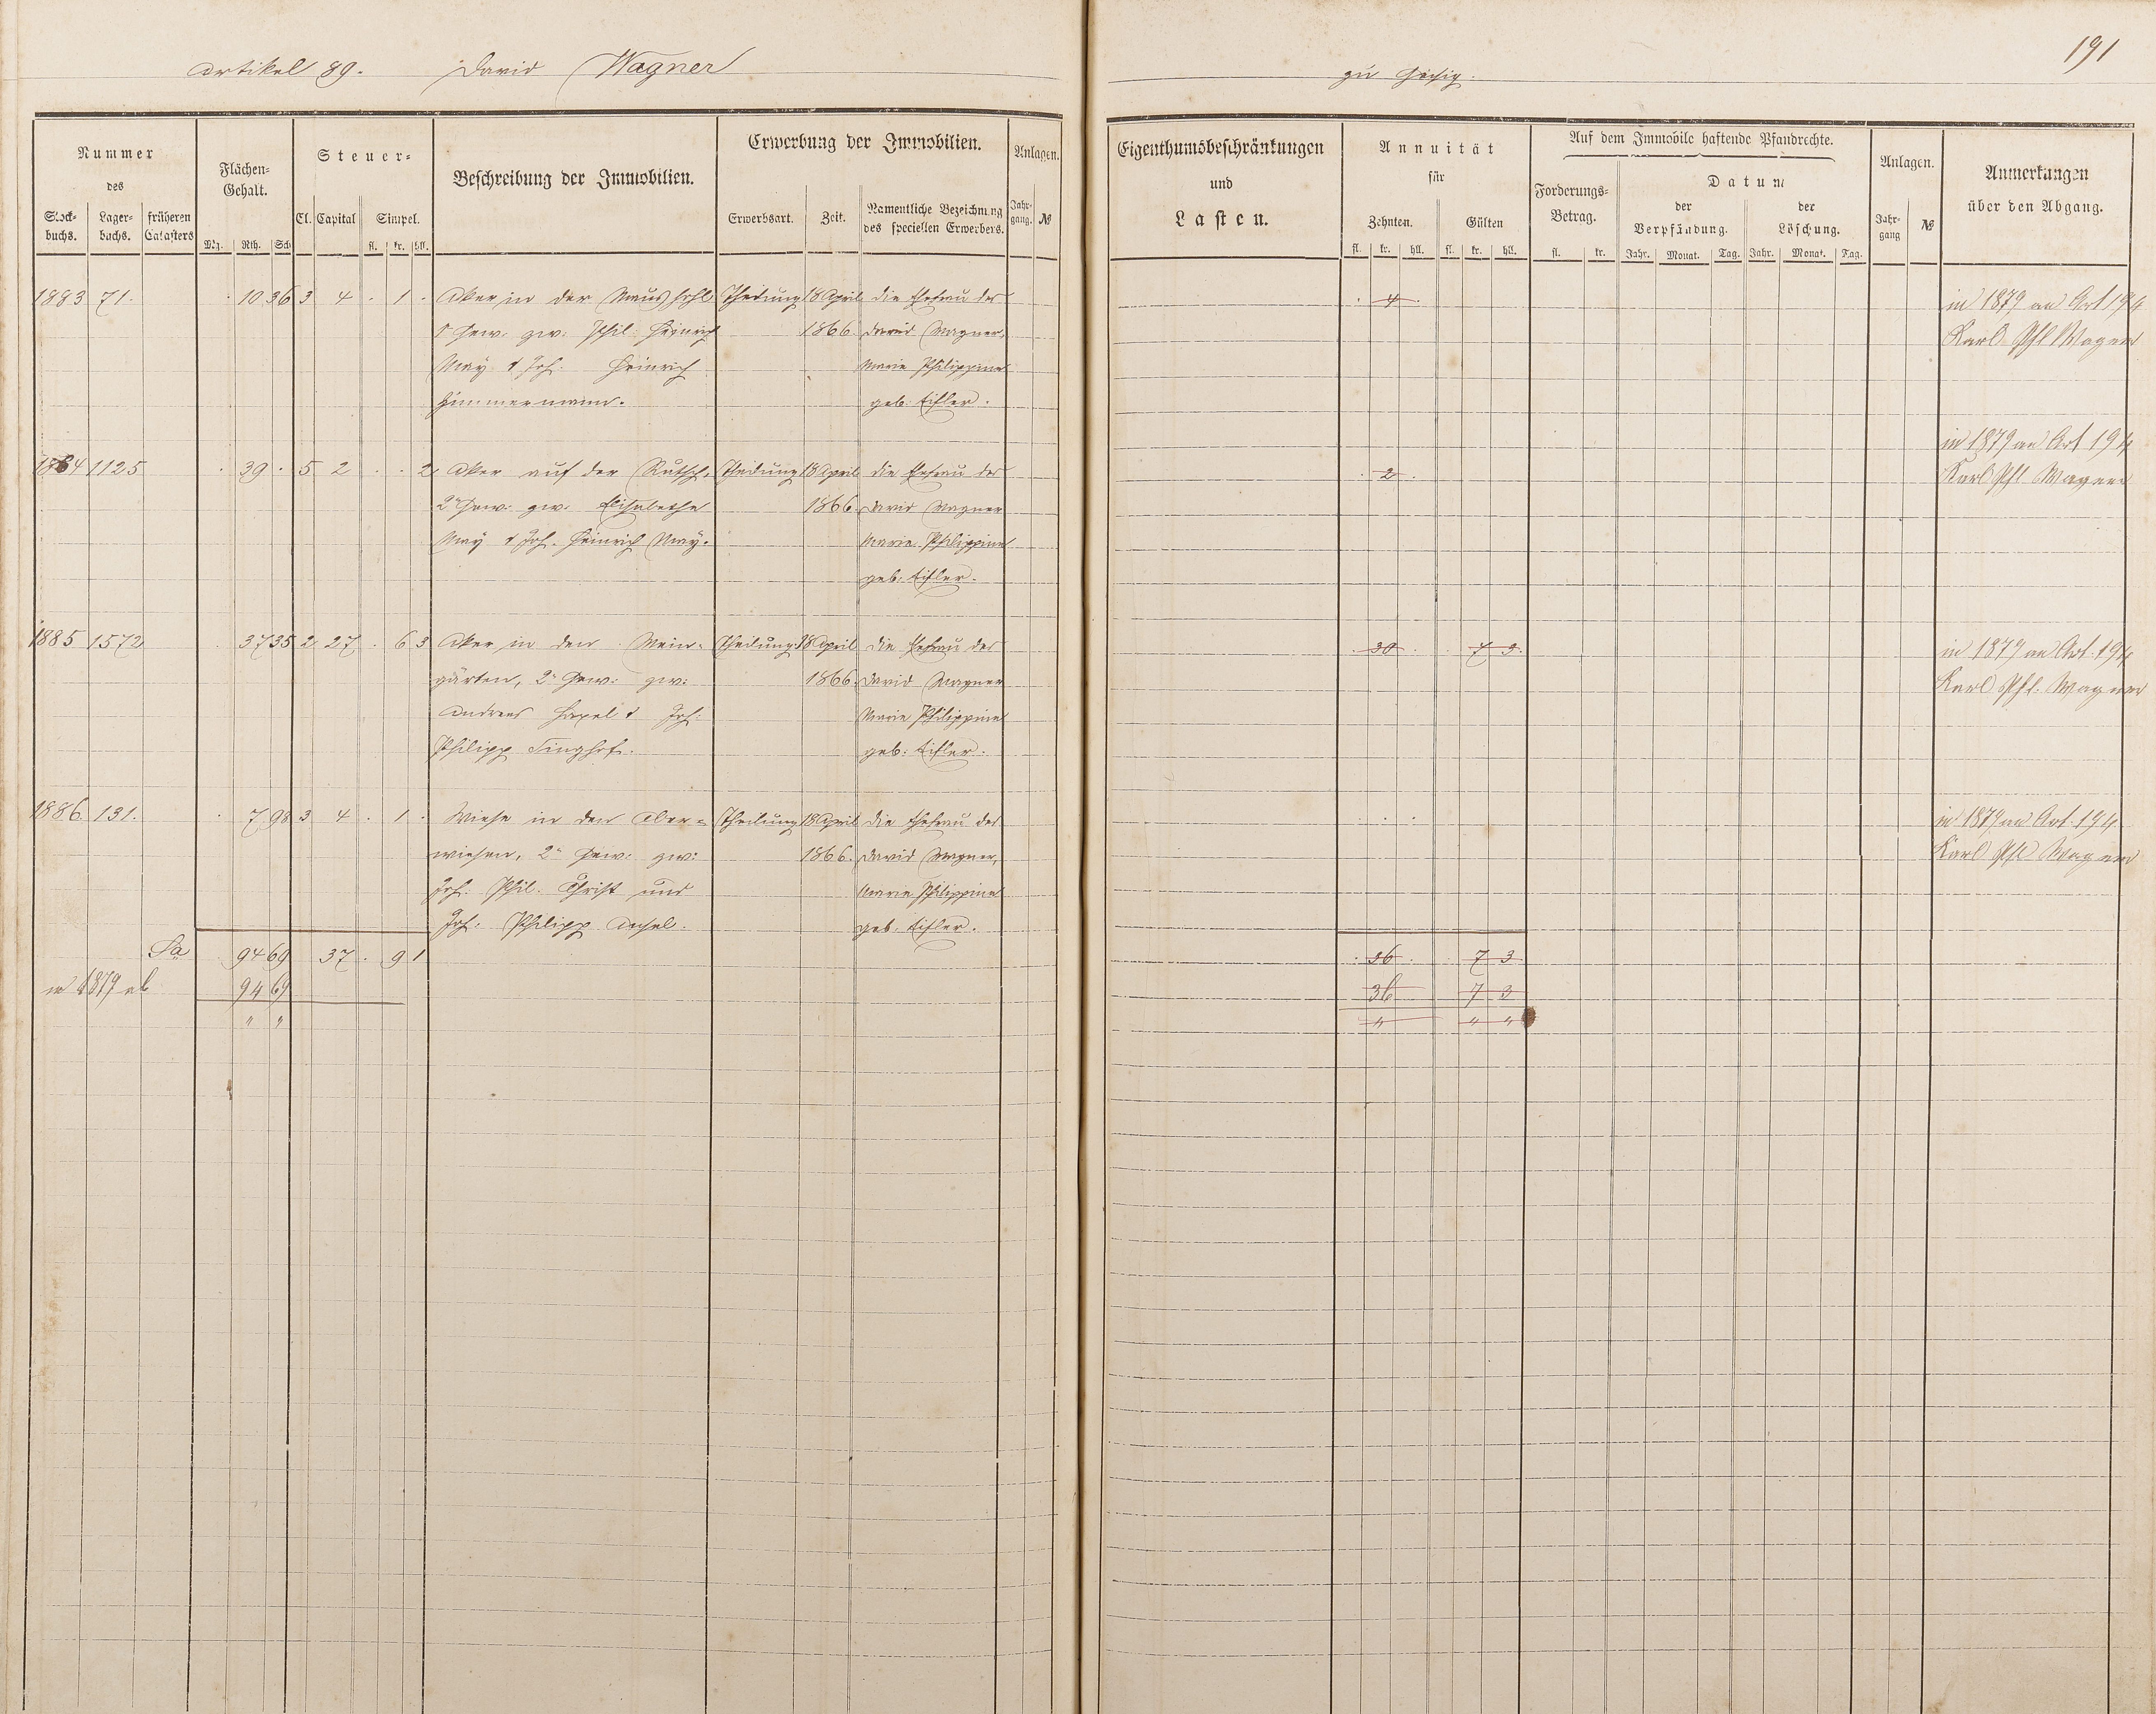 Artikel 89. David Wagner
zu
191
Nummer
des
Stock-
buchs.
Lager-
buchs.
früheren
Catasters
Flächen-
Gehalt.
Mg. Rth. Sch
Steuer-
Cl. Capital Simpel.
fl. kr. hll.
Beschreibung der Immobilien.
Erwerbung der Immobilien.
Erwerbsart. Zeit.
Namentliche Bezeichnung
des speciellen Erwerbers.
Anlagen.
Jahr-
gang. №
Eigenthumsbeschränkungen
und
Lasten.
Annuität
für
Zehnten. Gülten
fl. kr. hll. fl. kr. hll.
Auf dem Immobile haftende Pfandrechte.
Forderungs-
Betrag.
fl. kr.
Datum
der
Verpfändung.
der
Löschung.
Jahr. Monat. Tag. Jahr. Monat. Tag.
Anlagen.
Jahr-
gang №
Anmerkungen
über den Abgang.
1883 71. 10 36 3 4 . 1 . Aker in der Maushohl Theilung 18 April die Ehefrau des 4 in 1879 an Art 194
1r Gew. zw: Phil. Heinrich 1866 David Wagner, Karl Phl Wagner
May & Joh. Heinrich Marie Philippine
Zimmermann. geb: Eisler.
1884 1125 39 . 5 2 . . 2 Aker auf der Rutsch, Theilung 18 April die Ehefrau des 2 in 1879 an Art 194
2r Gew: zw: Elisabethe 1866. David Wagner Karl Phl Wagner
May & Joh. Heinrich May. Marie Philippine
geb. Eisler.
1885 1572 37 35 2 27 . 6 3 Aker in den Wein- Theilung 18 April die Ehefrau des 30 7 3 in 1879 an Art. 194
gärten, 2r Gew: zw: 1866. David Wagner Karl Phl. Wagner
Andreas & Joh:
Marie Philippine
Philipp geb: Eisler.
1886. 131. 7 98 3 4 . 1 . Wiese in den Ober- Theilung 18 April die Ehefrau des in 1879 an Art. 194
wiesen, 2r Gew: zw: 1866. David Wagner, Karl Phl Wagner
Joh. Phil. Christ und Marie Philippine
Joh. Philipp geb. Eisler.
Sa 94 69 37 . 9 1 36 7 3
in 1879 ab 94 69 36 7 3
" " " " "